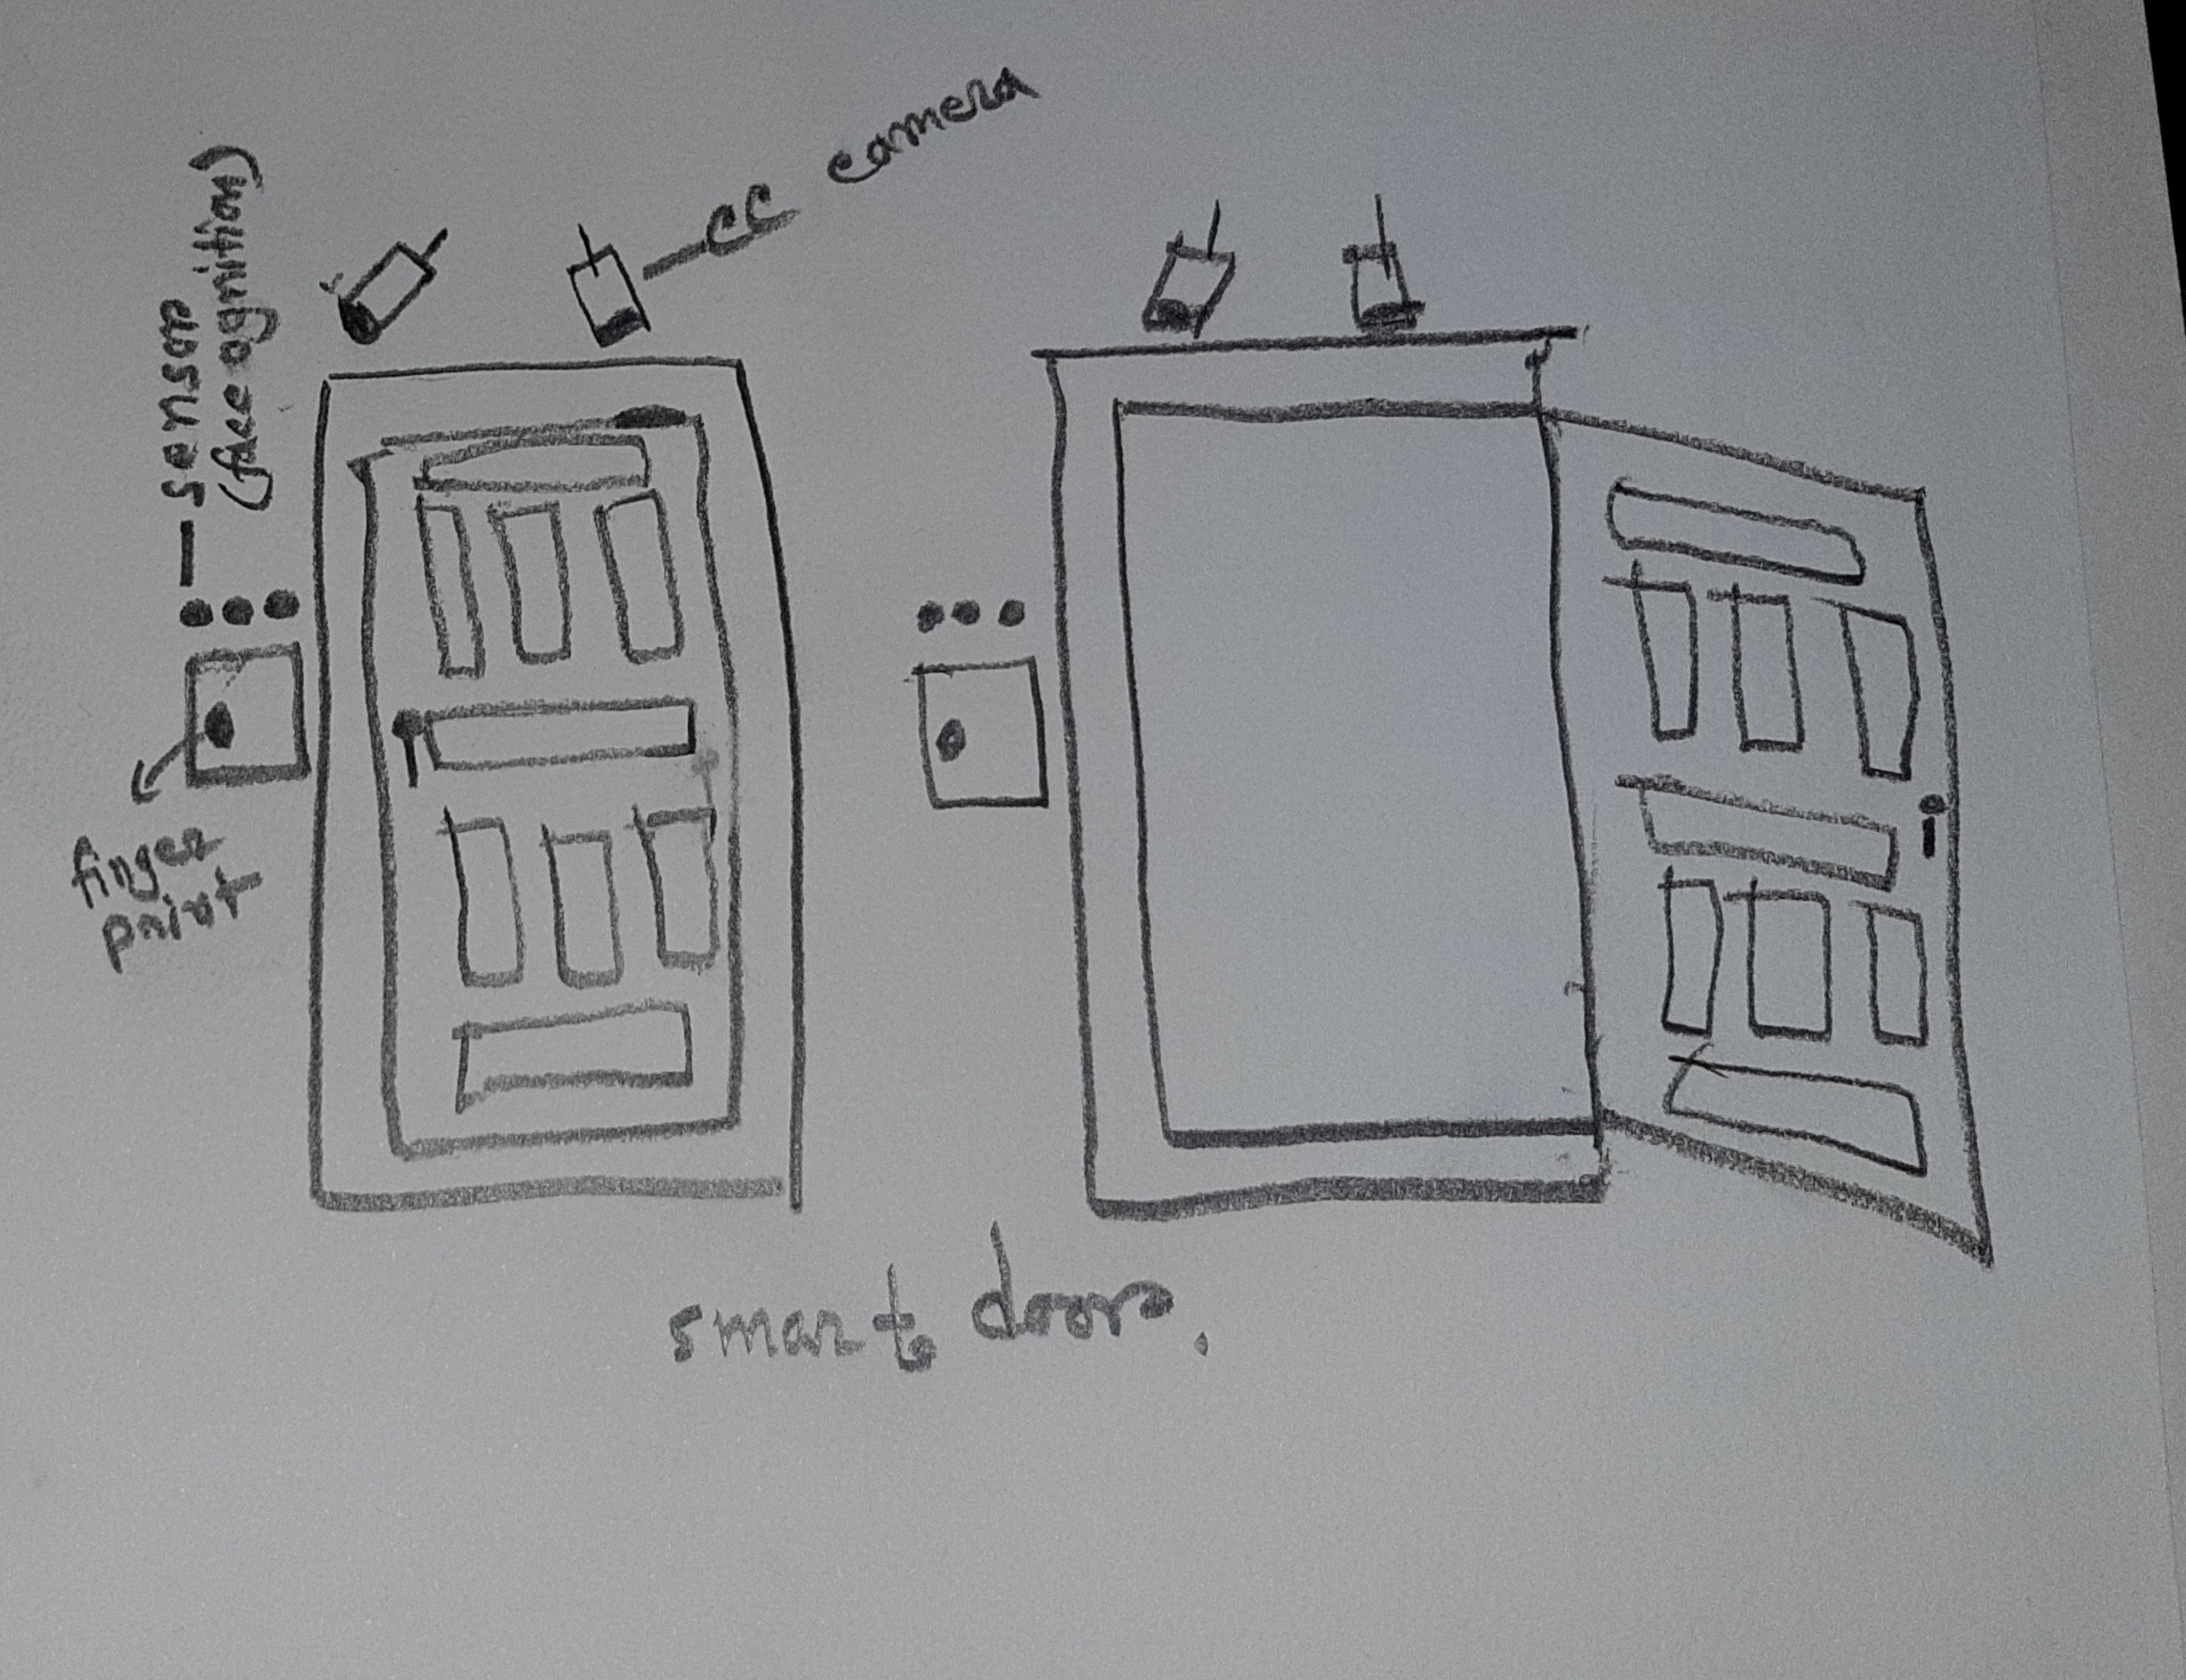 sensor
(face ognition)
CC camera
finger
print
smart door.